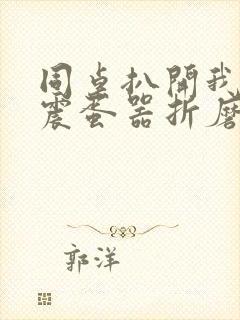 同桌扒開我
震蛋器折磨
郭洋